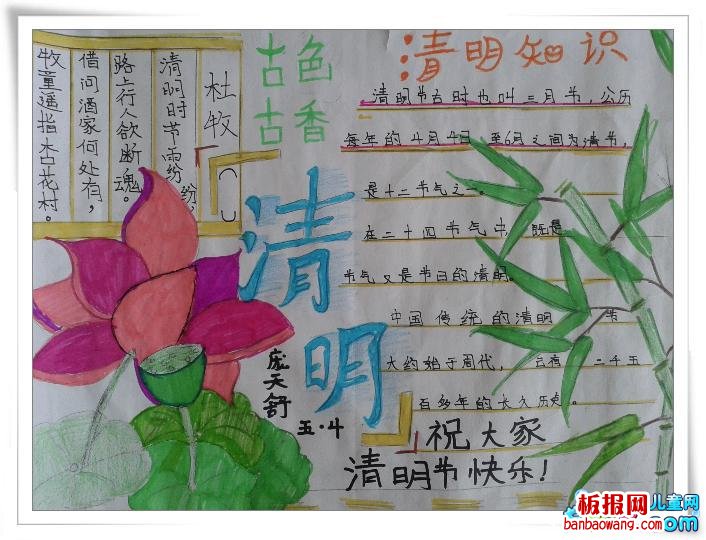 杜牧
清明时节雨纷纷，
路上行人欲断魂。
借问酒家何处有，
牧童遥指杏花村。
古色
古香
清明
庞天舒
五·4
清明知识
清明节古时也叫三月节，公历
每年的4月4日 至6日之间为清节，
是十二节气之一。
在二十四节气中，既是
节气又是节日的清明。
中国传统的清明 节
大约始于周代， 二千五
百多年的长久历史。
祝大家
清明节快乐！
板报网儿童网
banbaowang.com